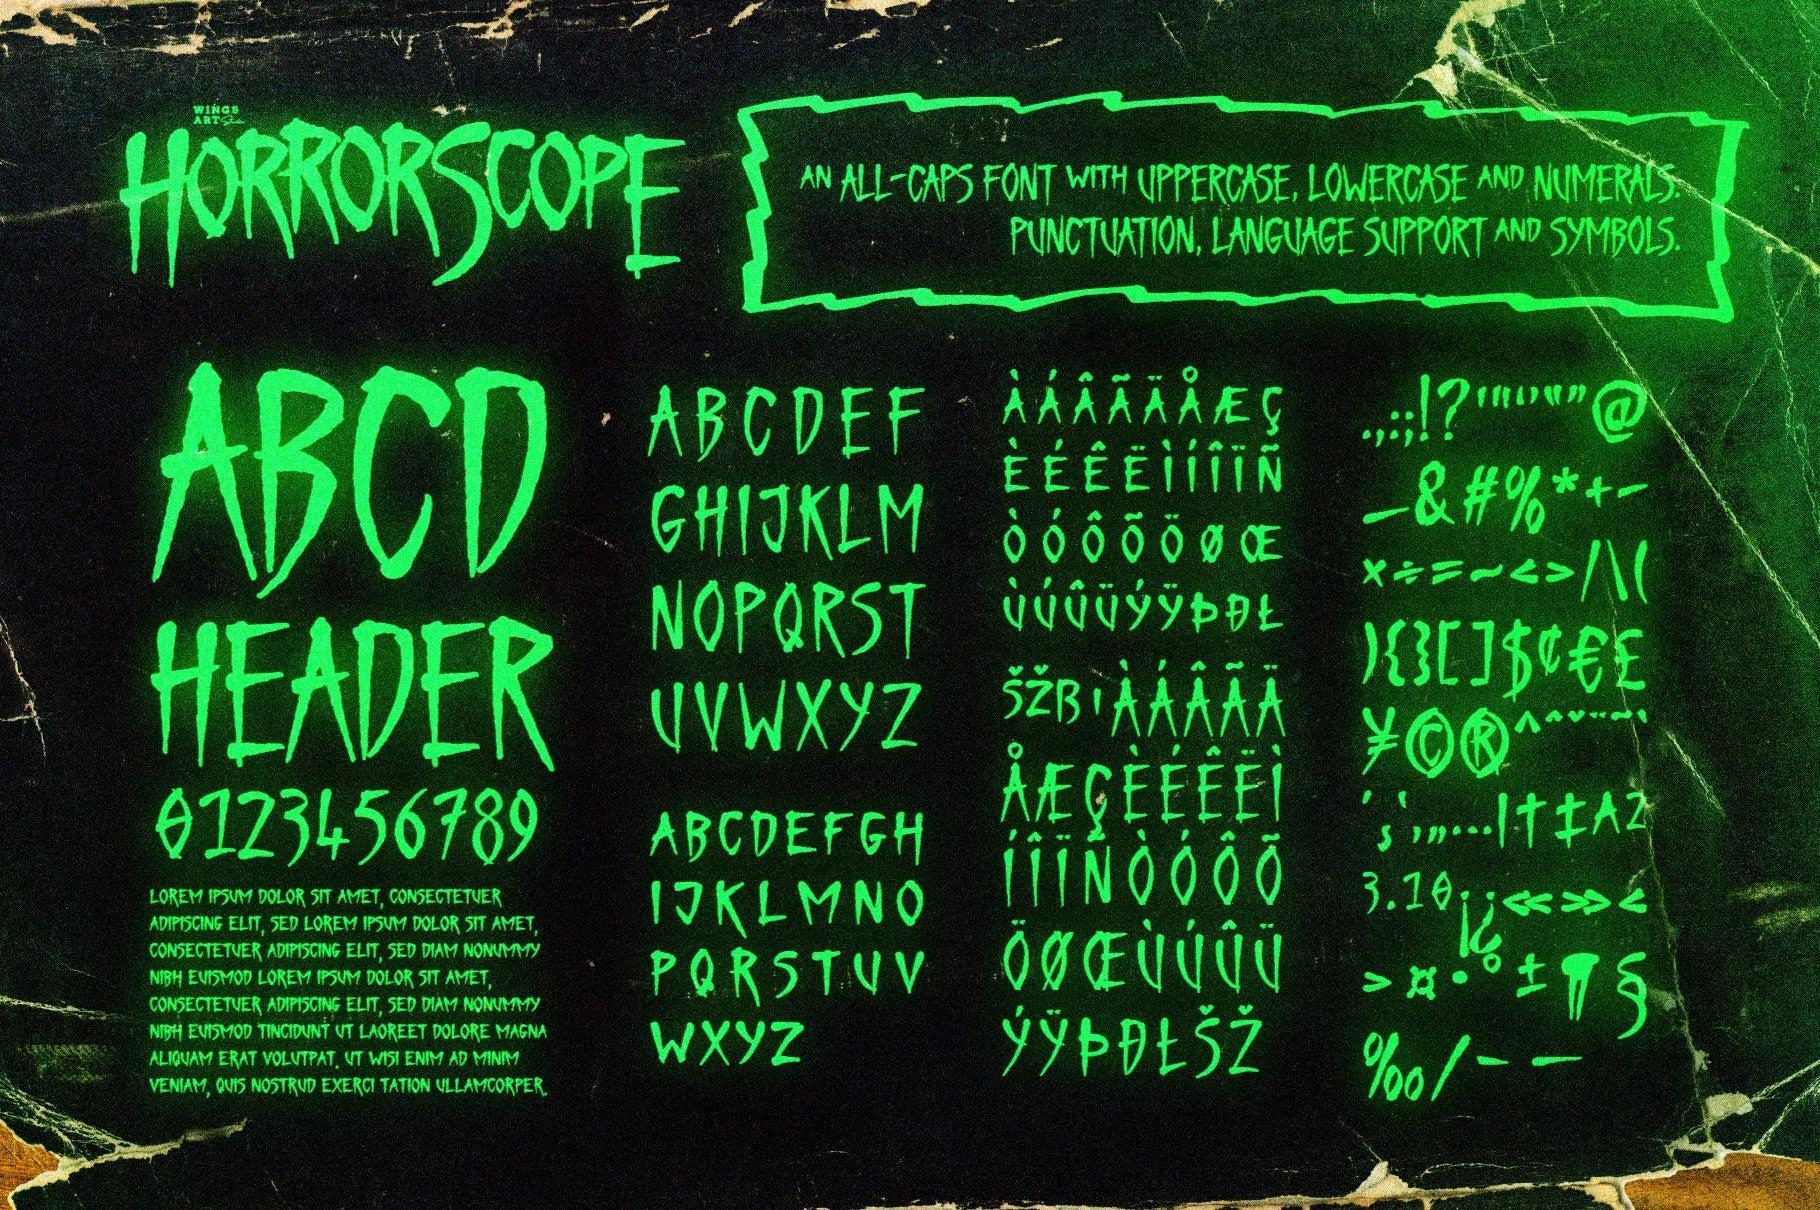 WINGS
ART
HORRORSCOPE
AN ALL-CAPS FONT WITH UPPERCASE, LOWERCASE AND NUMERALS.
PUNCTUATION, LANGUAGE SUPPORT AND SYMBOLS.
ABCD
HEADER
0123456789
LOREM IPSUM DOLOR SIT AMET, CONSECTETUER
ADIPISCING ELIT, SED LOREM IPSUM DOLOR SIT AMET,
CONSECTETUER ADIPISCING ELIT, SED DIAM NONUMMY
NIBH EUISMOD LOREM IPSUM DOLOR SIT AMET,
CONSECTETUER ADIPISCING ELIT, SED DIAM NONUMMY
NIBH EUISMOD TINCIDUNT UT LAOREET DOLORE MAGNA
ALIQUAM ERAT VOLUTPAT. UT WISI ENIM AD MINIM
VENIAM, QUIS NOSTRUD EXERCI TATION ULLAMCORPER.
ABCDEF
GHIJKLM
NOPQRST
UVWXYZ
ABCDEFGH
IJKLMNO
PQRSTUV
WXYZ
ÀÁÂÃÄÅÆÇ
ÈÉÊËÌÍÎÏÑ
ÒÓÔÕÖØŒ
ÙÚÛÜÝŸÞÐŁ
ŠŽßıÀÁÂÃÄ
ÅÆÇÈÉÊËÌ
ÍÎÏÑÒÓÔÕ
ÖØŒÙÚÛÜ
ÝŸÞÐŁŠŽ
.,:;!?'"‘’“”@
_&#%*+-
×÷=~<>/\(
){}[]$¢€£
¥©®^ˆˇ¨˜`
´¸‚„…|†‡AZ
3.10¡¿«»‹
›¤•°±¶§
‰⁄–—